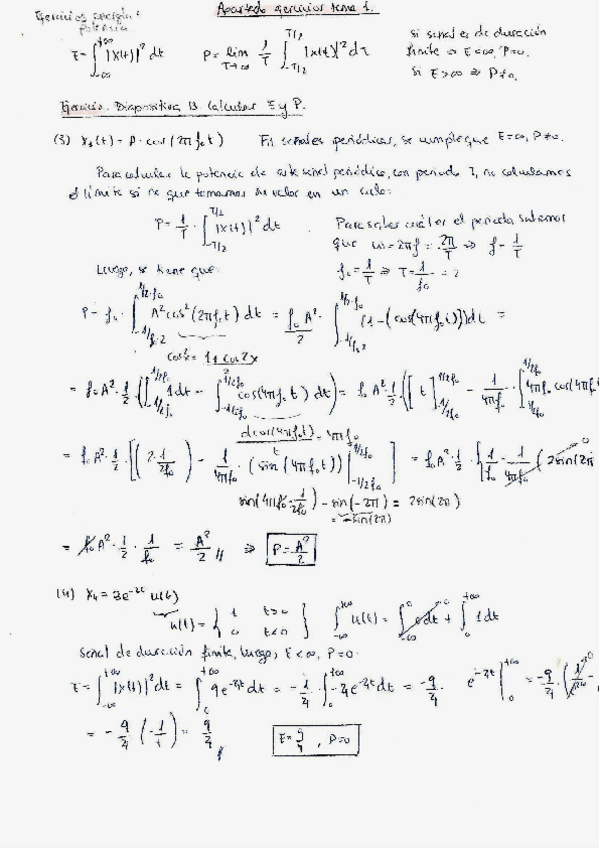 Ejercicios energía y potencia
Apartado ejercicios tema 1.
E = ∫_{-∞}^{+∞} |x(t)|² dt P = lim_{T→∞} 1/T ∫_{-T/2}^{T/2} |x(t)|² dt si señal es de duración
finita ⇒ E<∞, P=0.
si E>∞ ⇒ P≠0.
Ejercicio. Diapositiva 13. Calcular E y P.
(3) x₃(t) = A·cos(2πf₀t) En señales periódicas, se cumple que E=∞, P≠0.
Para calcular la potencia de esta señal periódica, con periodo T, no calculamos
el límite si no que tomamos su valor en un ciclo:
P = 1/T · ∫_{-T/2}^{T/2} |x(t)|² dt Para saber cuál es el periodo sabemos
que ω=2πf = 2π/T ⇒ f = 1/T
Luego, se tiene que: f₀ = 1/T ⇒ T = 1/f₀
P = f₀ · ∫_{-1/f₀·2}^{1/2·f₀} A² cos²(2πf₀t) dt = f₀A²/2 · ∫_{-1/f₀·2}^{1/2·f₀} (1-(cos(4πf₀t))) dt =
cos²x = 1+cos2x/2
= f₀A² · 1/2 · (∫_{-1/2f₀}^{1/2f₀} 1 dt - ∫_{-1/2f₀}^{1/2f₀} cos(4πf₀t) dt) = f₀A² · 1/2 · ([t]_{-1/2f₀}^{1/2f₀} - 1/4πf₀ · ∫ 4πf₀ cos(4πf₀
d cos(4πf₀t)/t = 4πf₀
= f₀A² · 1/2 · [(2·1/2f₀) - 1/4πf₀ · (sin(4πf₀t))|_{-1/2f₀}^{1/2f₀}] = f₀A² · 1/2 · {1/f₀ - 1/4πf₀ (2sin(2π
sin(4πf₀·1/2f₀) - sin(-2π) = 2sin(2π)
= -sin(2π)
= f₀A² · 1/2 · 1/f₀ = A²/2 ⇒ P = A²/2
(4) x₄ = 3e^{-2t} u(t)
u(t) = { 1 t>0 0 t<0 } ∫_{-∞}^{+∞} u(t) = ∫_{-∞}^{0} 0dt + ∫_{0}^{+∞} 1dt
Señal de duración finita, luego, E<∞, P=0.
E = ∫_{-∞}^{+∞} |x(t)|² dt = ∫_{0}^{+∞} 9e^{-4t} dt = -1/4 · ∫_{0}^{+∞} -4e^{-4t} dt = -9/4 · e^{-4t} |_{0}^{+∞} = -9/4 · (
= -9/4 · (-1/1) = 9/4
E = 9/4 , P=0